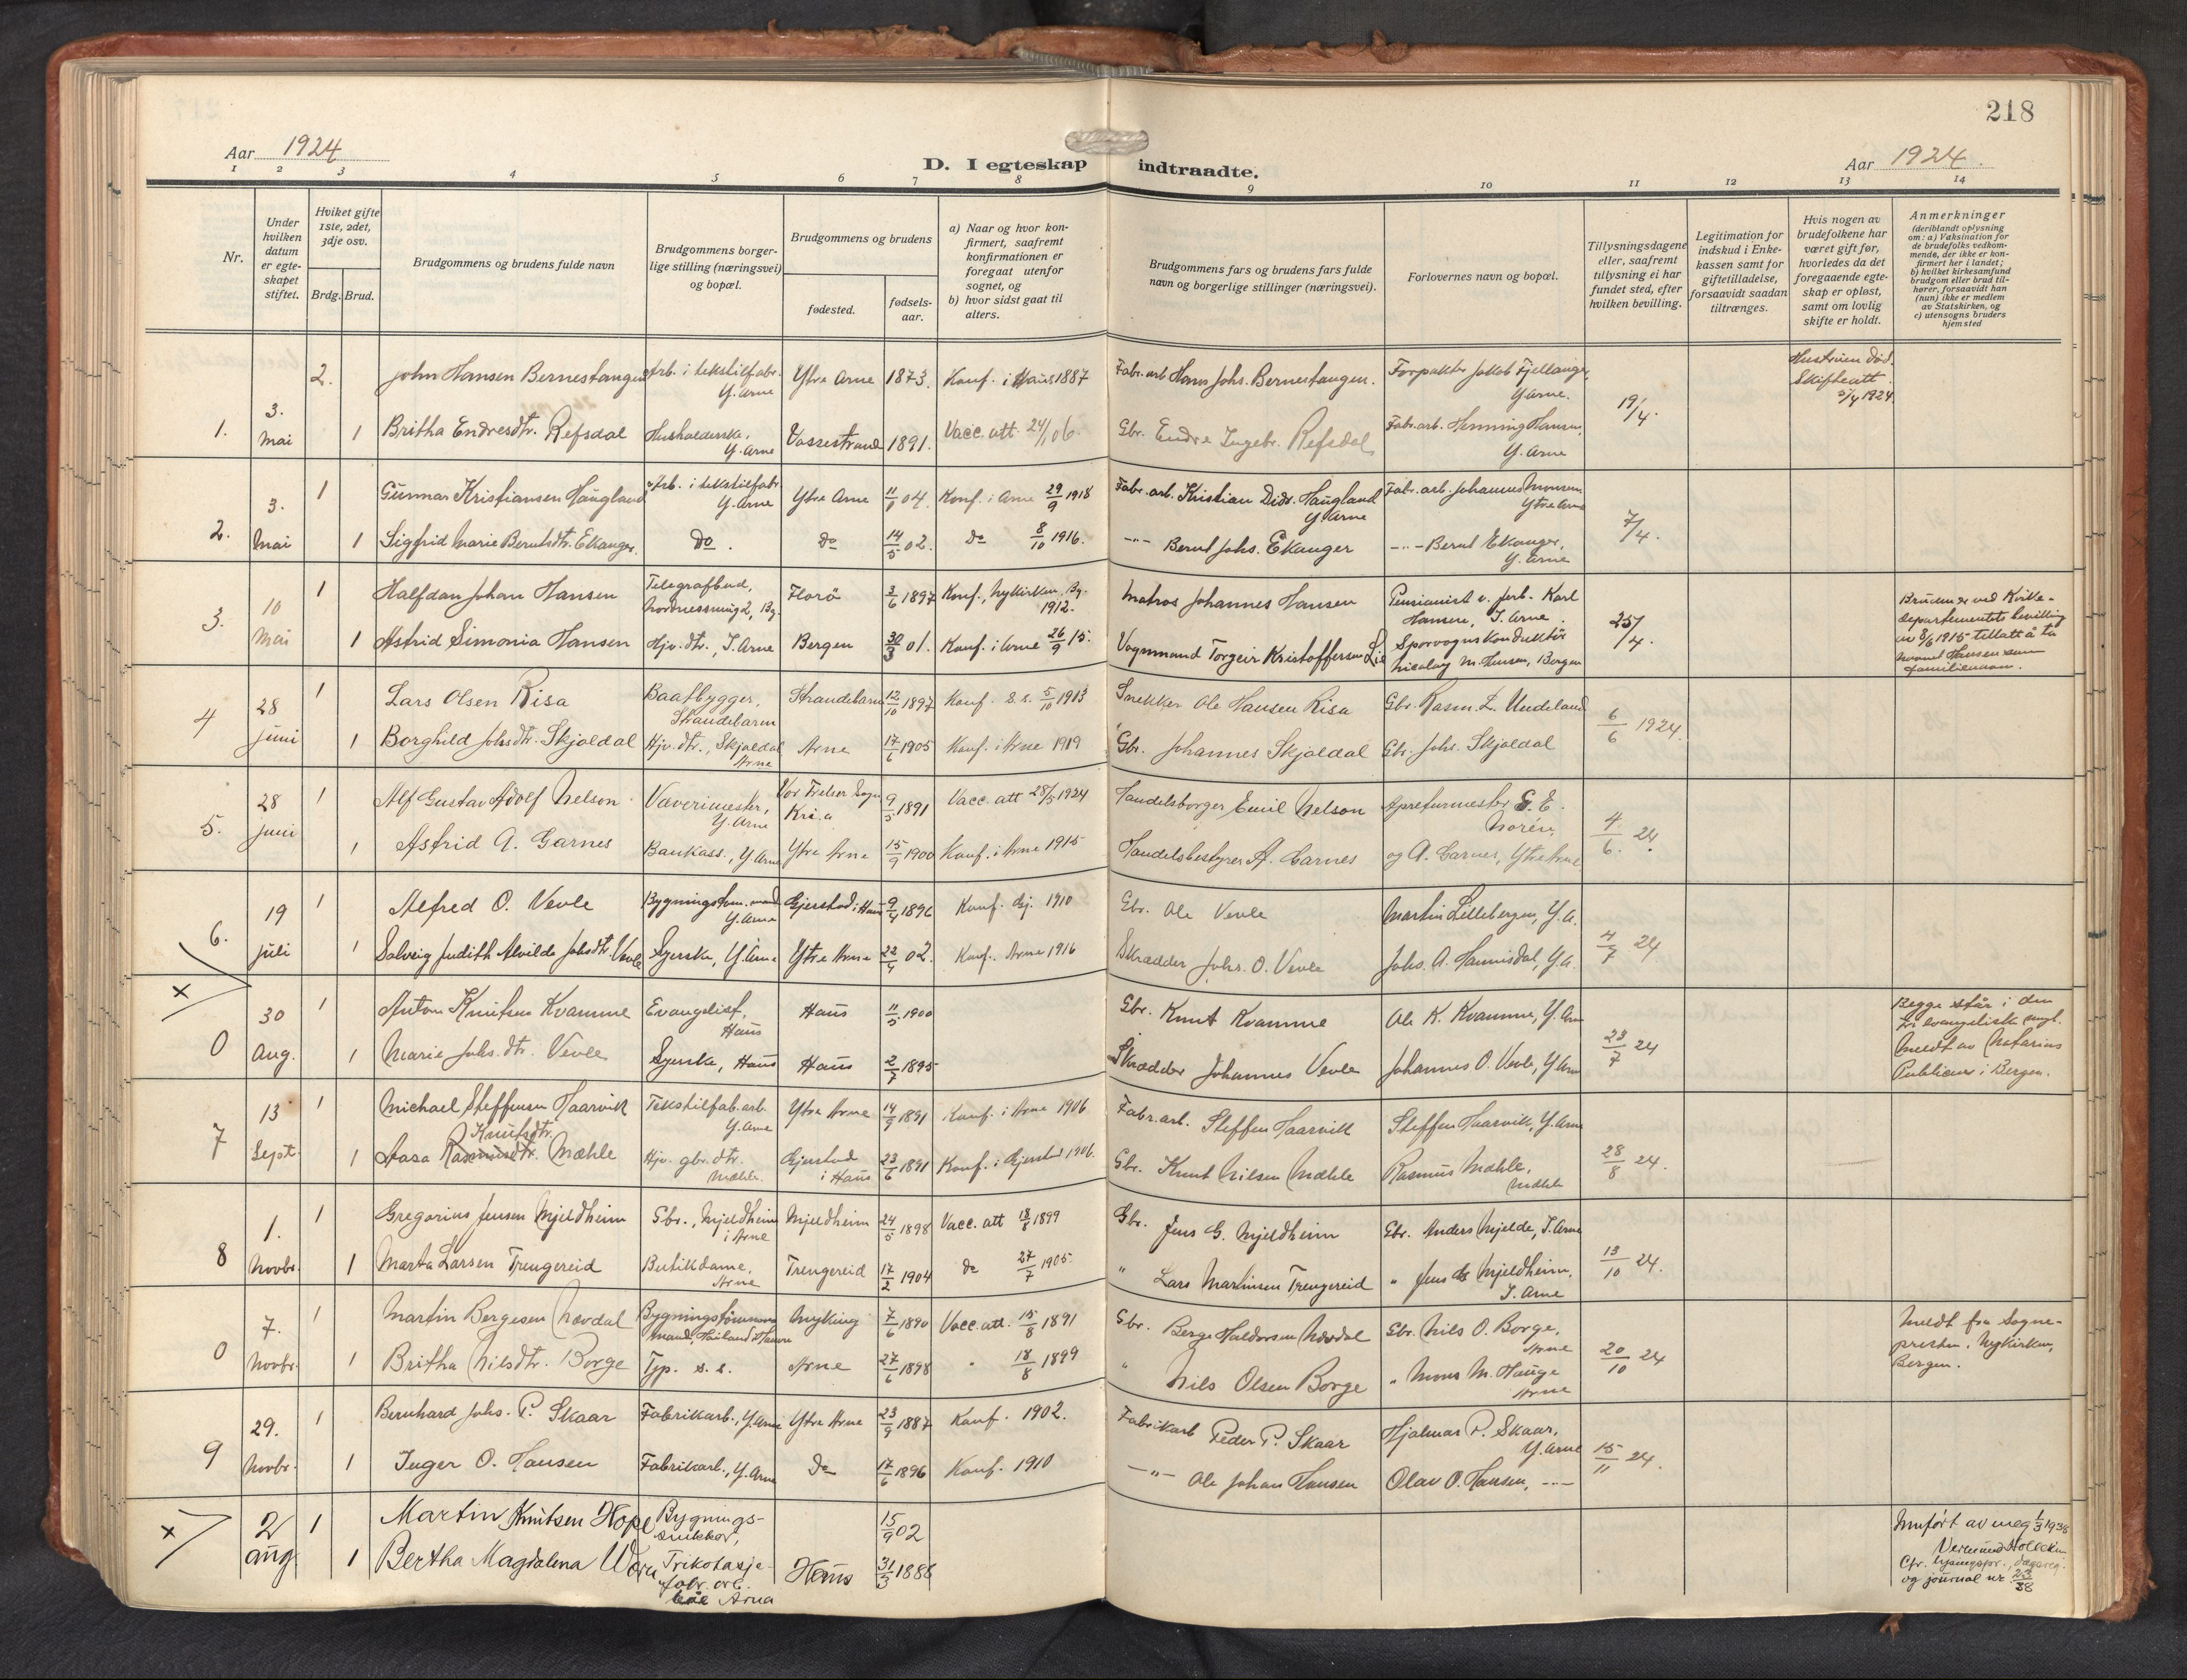 218
Aar 1924
D. I egteskap indtraadte.
Aar 1924.
1 2 3 4 5 6 7 8 9 10 11 12 13 14
Nr.
Under hvilken datum er egteskapet stiftet.
Hviket gifte 1ste, 2det, 3dje osv.
Brdg. Brud.
Brudgommens og brudens fulde navn
Brudgommens borgerlige stilling (næringsvei) og bopæl.
Brudgommens og brudens
fødested.
fødselsaar.
a) Naar og hvor konfirmert, saafremt konfirmationen er foregaat utenfor sognet, og
b) hvor sidst gaat til alters.
Brudgommens fars og brudens fars fulde navn og borgerlige stillinger (næringsvei).
Forlovernes navn og bopæl.
Tillysningsdagene eller, saafremt tillysning ei har fundet sted, efter hvilken bevilling.
Legitimation for indskud i Enkekassen samt for giftetilladelse, forsaavidt saadan tiltrænges.
Hvis nogen av brudefolkene har været gift før, hvorledes da det foregaaende egteskap er opløst, samt om lovlig skifte er holdt.
Anmerkninger
(deriblandt oplysning om: a) Vaksination for de brudefolks vedkommende, der ikke er konfirmert her i landet; b) hvilket kirkesamfund brudgom eller brud tilhører, forsaavidt han (hun) ikke er medlem av Statskirken, og c) utensogns bruders hjemsted
1. 3. Mai
2. John Hansen Bernestangen Arb. i tekstilfabr. Y. Arne Ytre Arne 1873. Konf. i Haus 1887 Fabr. arb. Hans Johs. Bernestangen. Forpakter Jakob Fjellanger, Y. Arne. 19/4. Hustruen død. Skifteatt. 1924
1 Britha Endresdtr. Refsdal Husholderske, Y. Arne Vossestrand 1891. Vacc. att. 24/1 06. Gbr. Endre Ingebr. Refsdal Fabr. arb. Henning Hansen, Y. Arne
2. 3. Mai
1 Gunnar Kristiansen Haugland Arb. i tekstilfabr. Y. Arne Ytre Arne 04. Konf. i Arne 29/9 1918 Fabr. arb. Kristian Didr. Haugland Y. Arne Fabr. arb. Johannes Monsen. Ytre Arne 7/4.
1 Sigfrid Marie Berntsdtr. Ekanger. Do. do 14/5 02. do 8/10 1916. -"- Bernt Johs. Ekanger -"- Bernt Ekanger, Y. Arne
3. 10 Mai
1 Halfdan Johan Hansen Telegrafbud, Nordnessmug 2, Bg. Florø 3/6 1897 Konf., Nykirken, Bg. 1912. Matros Johannes Hansen Pensionist v. jerb. Karl Hansen, I. Arne 25/4. Bruden er ved Kirkedepartementets bevilling av 8/6 1915 tillatt å ta navnet Hansen som familienavn.
1 Astrid Simonia Hansen Hjv. dtr., I. Arne Bergen 30/3 01. Konf. i Arne 26/9 15. Vognmand Torgeir Kristoffersen Lie Sporvognskonduktør Nicolay M. Hansen, Bergen
4 28 juni
1 Lars Olsen Risa Baatbygger, Strandebarm Strandebarm 12/10 1897 Konf. s. s. 5/10 1913 Snekker Ole Hansen Risa Gbr. Rasm. L. Undeland 6/6 1924.
1 Borghild Johsdtr. Skjoldal Hjv. dtr., Skjoldal Arne Arne 17/6 1905 Konf. i Arne 1919 Gbr. Johannes Skjoldal Gbr. Johs. Skjoldal
5. 28 juni
1 Alf Gustav Adolf Nelson Væverimester, Y. Arne Vor Frelser Sogn Kri.a 9/5 1891 Vacc. att 28/5 1924 Handelsborger Emil Nelson Apreturmester G. E. Norén, 4/6. 24.
1 Astrid A. Garnes Bankass., Y Arne Ytre Arne 15/9 1900 Konf. i Arne 1915 Handelsbestyrer A. Garnes og A. Garnes, Ytre Arne
6. 19 juli
1 Alfred O. Vevle Y. Arne Gjerstad i Haus 9/4 1896 Konf. Gj. 1910 Gbr. Ole Vevle Martin Lillebergen, Y. A. 4/7 24
1 Solveig Judith Alvilde Johsdtr. Vevle Syerske, Y. Arne Ytre Arne 22/4 02. Konf. Arne 1916 Skrædder Johs. O. Vevle Johs. A. Hannisdal, Y. A.
x
0 30 Aug.
1 Anton Knutsen Kvamme Evangelist, Haus Haus 11/5 1900 Gbr. Knut Kvamme Ole K. Kvamme, Y. Arne 23/7 24 Begge står i den fri evangeliske mgh. Meldt av Notarius Publicus i Bergen.
1 Marie Johs. dtr. Vevle Syerske, Haus Haus 2/7 1895 Skrædder Johannes Vevle Johannes O. Vevle, Y Arne
7 13 Sept.
1 Michael Steffensen Haarvik Tekstilfab. arb. Y. Arne Ytre Arne 14/9 1891 Konf. i Arne 1906 Fabr. arb. Steffen Haarvik Steffen Haarvik, Y. Arne 28/8 24.
Knutsdtr.
1 Aasa Rasmusdtr. Mæhle Hjv. gbr. dtr. Mæhle. Gjerstad i Haus 23/6 1891 Konf. i Gjerstad 1906. Gbr. Knut Nilsen Mæhle Rasmus Mæhle, Mæhle
8 1. Novbr.
1 Gregorius Jensen Mjeldheim Gbr., Mjeldheim i Arne Mjeldheim 24/5 1898 Vacc. att 18/8 1899 Gbr. Jens G. Mjeldheim Gbr. Anders Mjelde, I. Arne 13/10 24.
1 Marta Larsen Trengereid Butikdame, Arne Trengereid 17/2 1904 do 27/7 1905. " Lars Martinsen Trengereid " Jens G. Mjeldheim, I. Arne
0 7. Novbr.
1 Martin Bergesen Nævdal Myking 7/6 1890 Vacc. att. 15/8 1891 Gbr. Berge Haldorsen Nævdal Gbr. Nils O. Borge, Arne 20/10 24 Meldt fra Sognepresten. Nykirken, Bergen.
1 Britha Nilsdtr. Borge Typ. s. s. Arne 27/6 1898 " 18/8 1899 " Nils Olsen Borge " Mons M. Hauge Arne
9 29. Novbr.
1 Bernhard Johs. P. Skaar Fabrikarb., Y. Arne Ytre Arne 23/9 1887 Konf. 1902. Fabrikarb Peder P. Skaar Hjalmar P. Skaar, Y. Arne 15/11 24.
1 Inger O. Hansen Fabrikarb., Y. Arne Do 17/6 1896 Konf. 1910 -"- Ole Johan Hansen Olav O. Hansen, -"-
x 2 aug.
1 Martin Knutsen Hope Bygningssnikker, 15/9 02 Innført av meg 1/3 1938
1 Bertha Magdalena Trikotasjefabr. arb. Arna Haus 31/3 1886 Cfr. lysningspr., dagsreg. og journal nr. 23/38